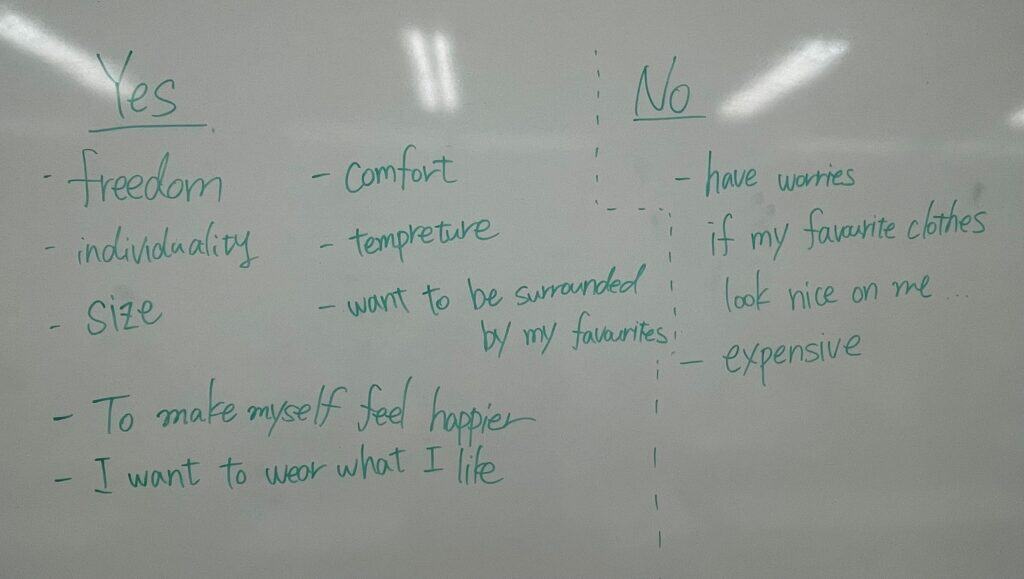 Yes
- freedom
- individuality
- size
- comfort
- tempreture
- want to be surrounded
by my favourites
- To make myself feel happier
- I want to wear what I like
No
- have worries
if my favourite clothes
look nice on me...
- expensive